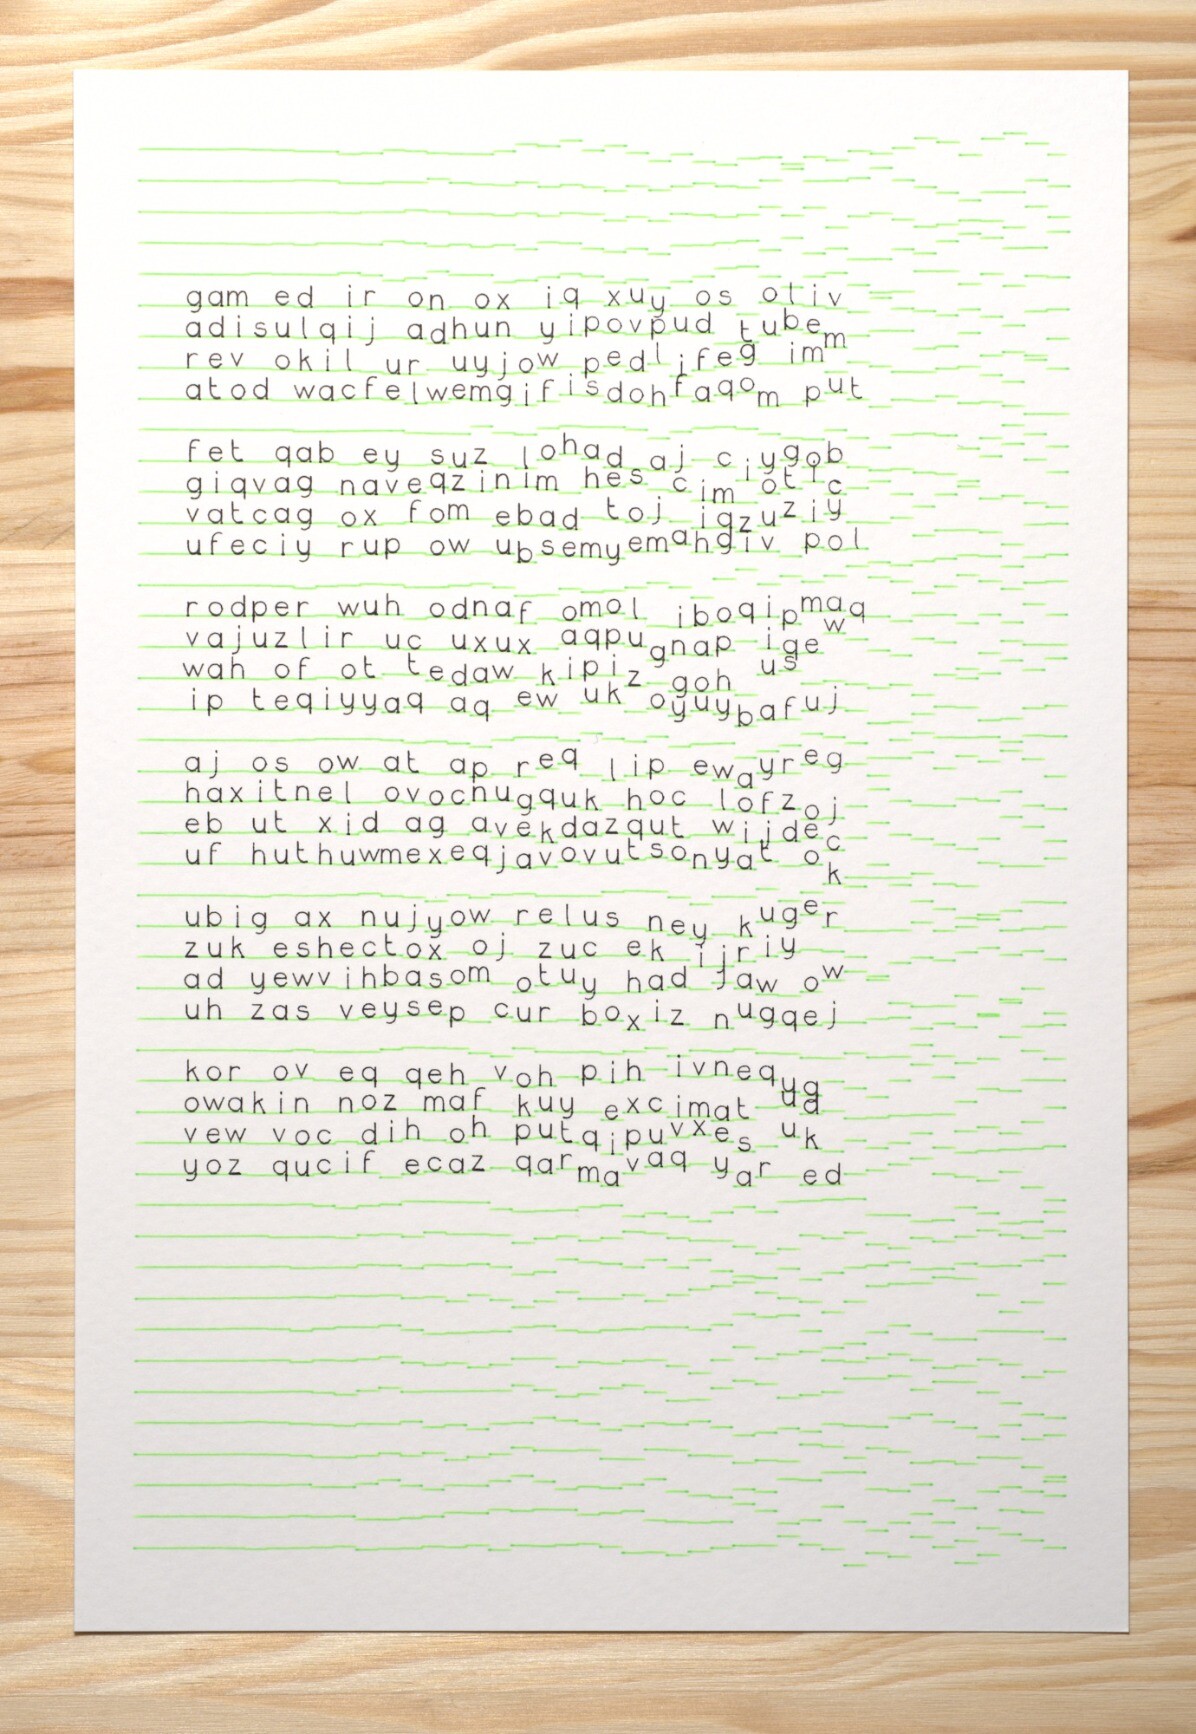 gam ed ir on ox iq xuy os otiv
adisulqij adhun yipovpud tubem
rev okil ur uyjow pedlifeg im
atod wacfelwemgifisdohfaqom put
fet qab ey suz lohad aj ciygob
giqvag naveqzinim hes cim otic
vatcag ox fom ebad toj iqzuziy
ufeciy rup ow ubsemyemahgiv pol
rodper wuh odnaf omol iboqipmaq
vajuzlir uc uxux aqpugnap igew
wah of ot tedaw kipiz goh us
ip teqiyyaq aq ew uk oyuybafuj
aj os ow at ap req lip ewayreg
haxitnel ovocnugquk hoc lofzoj
eb ut xid ag avekdazqut wijdec
uf huthuwmexeqjavovutsonyat ok
ubig ax nujyow relus ney kuger
zuk eshectox oj zuc ek ijriy
ad yewvihbasom otuy had jaw ow
uh zas veysep cur boxiz nugqej
kor ov eq qeh voh pih ivnequg
owakin noz maf kuy excimat ud
vew voc dih oh putqipuvxes uk
yoz qucif ecaz qarmavaq yar ed